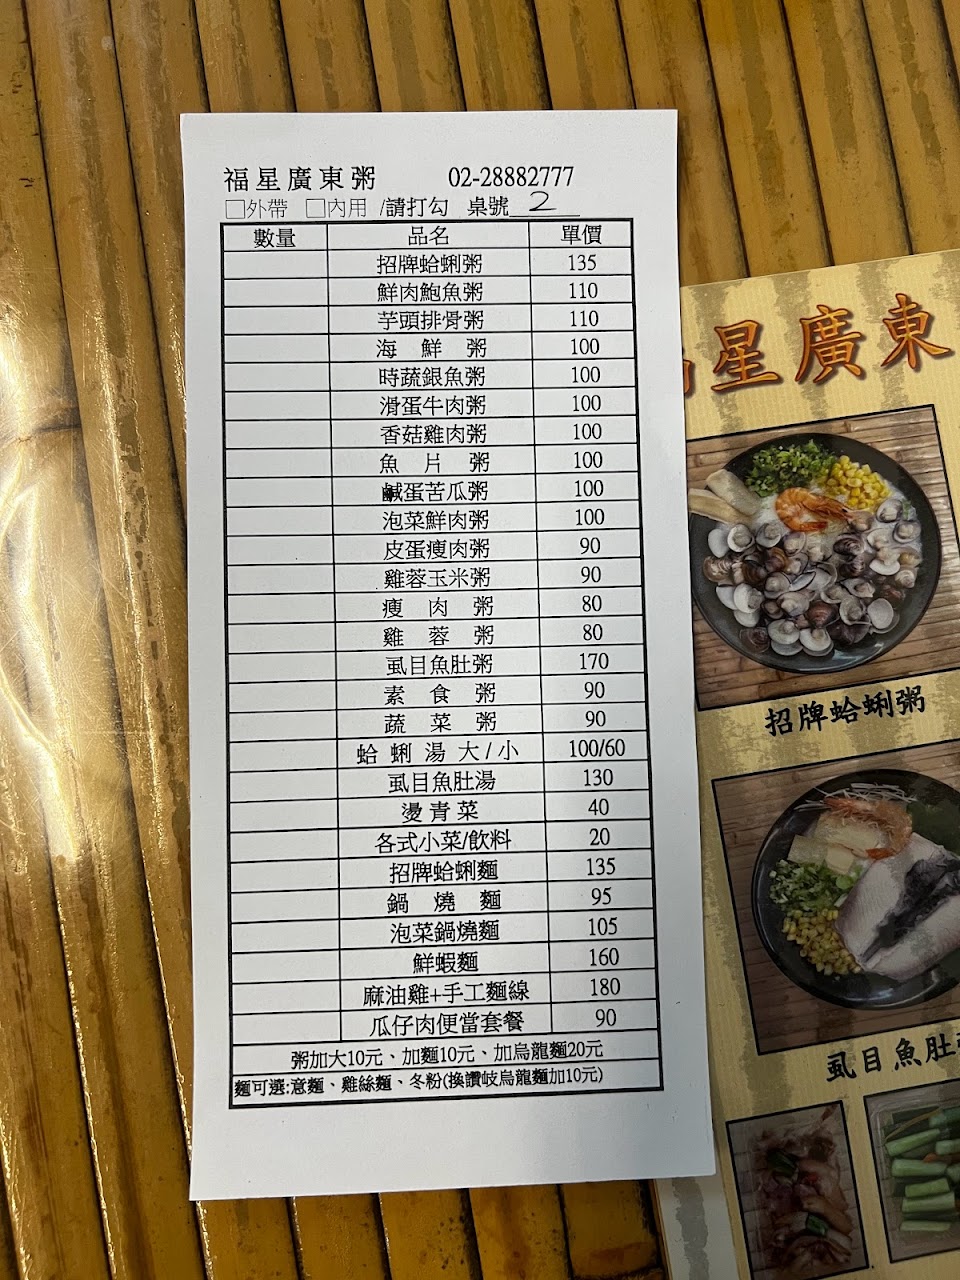 福星廣東粥 02-28882777
□外帶 □內用 /請打勾 桌號 2
數量 品名 單價
招牌蛤蜊粥 135
鮮肉鮑魚粥 110
芋頭排骨粥 110
海鮮粥 100
時蔬銀魚粥 100
滑蛋牛肉粥 100
香菇雞肉粥 100
魚片粥 100
鹹蛋苦瓜粥 100
泡菜鮮肉粥 100
皮蛋瘦肉粥 90
雞蓉玉米粥 90
瘦肉粥 80
雞蓉粥 80
虱目魚肚粥 170
素食粥 90
蔬菜粥 90
蛤蜊湯大/小 100/60
虱目魚肚湯 130
燙青菜 40
各式小菜/飲料 20
招牌蛤蜊麵 135
鍋燒麵 95
泡菜鍋燒麵 105
鮮蝦麵 160
麻油雞+手工麵線 180
瓜仔肉便當套餐 90
粥加大10元、加麵10元、加烏龍麵20元
麵可選:意麵、雞絲麵、冬粉(換讚岐烏龍麵加10元)
星廣東
招牌蛤蜊粥
虱目魚肚